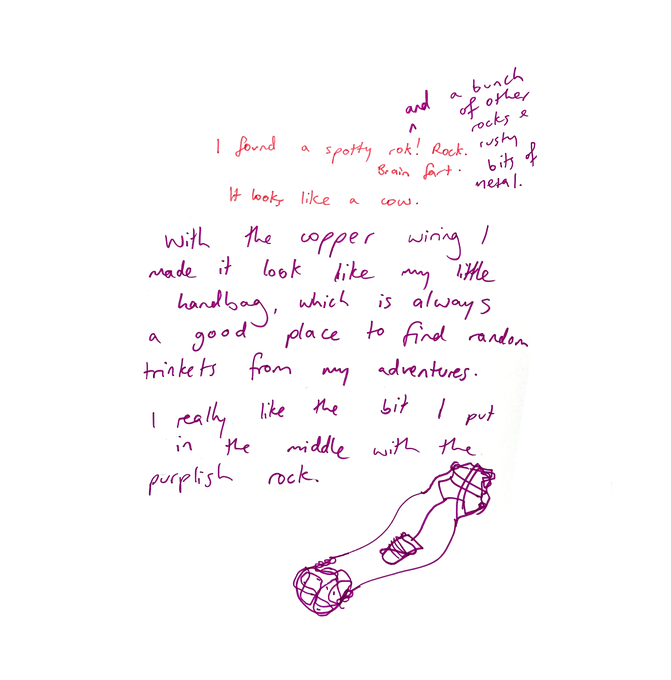 and
a bunch
of other
rocks &
rusty
bits of
metal.
I found a spotty rok! Rock.
Brain fart.
It looks like a cow.
With the copper wiring I
made it look like my little
handbag, which is always
a good place to find random
trinkets from my adventures.
I really like the bit I put
in the middle with the
purplish rock.